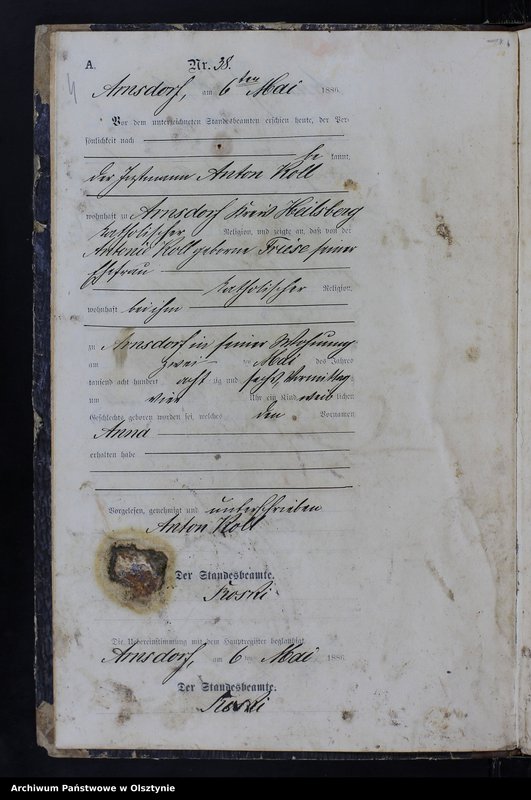 A. Nr. 38.
Arnsdorf, am 6ten Mai 1886.
Vor dem unterzeichneten Standesbeamten erschien heute, der Per-
sönlichkeit nach
be kannt,
der Anton Koll
wohnhaft zu Arnsdorf Kreis Heilsberg
katholischer Religion, und zeigte an, daß von der
Koll geborene seiner
Ehefrau
katholischer Religion,
wohnhaft bei ihm
zu Arnsdorf in seiner Wohnung
am zwei ten Mai des Jahres
tausend acht hundert acht zig und sechs, Vormittag
um vier Uhr ein Kind weib lichen
Geschlechts geboren worden sei, welches den Vornamen
Anna
erhalten habe
Vorgelesen, genehmigt und unterschrieben
Anton Koll
Der Standesbeamte.
Die Uebereinstimmung mit dem Hauptregister beglaubigt.
Arnsdorf, am 6 ten Mai 1886
Der Standesbeamte.
Archiwum Państwowe w Olsztynie